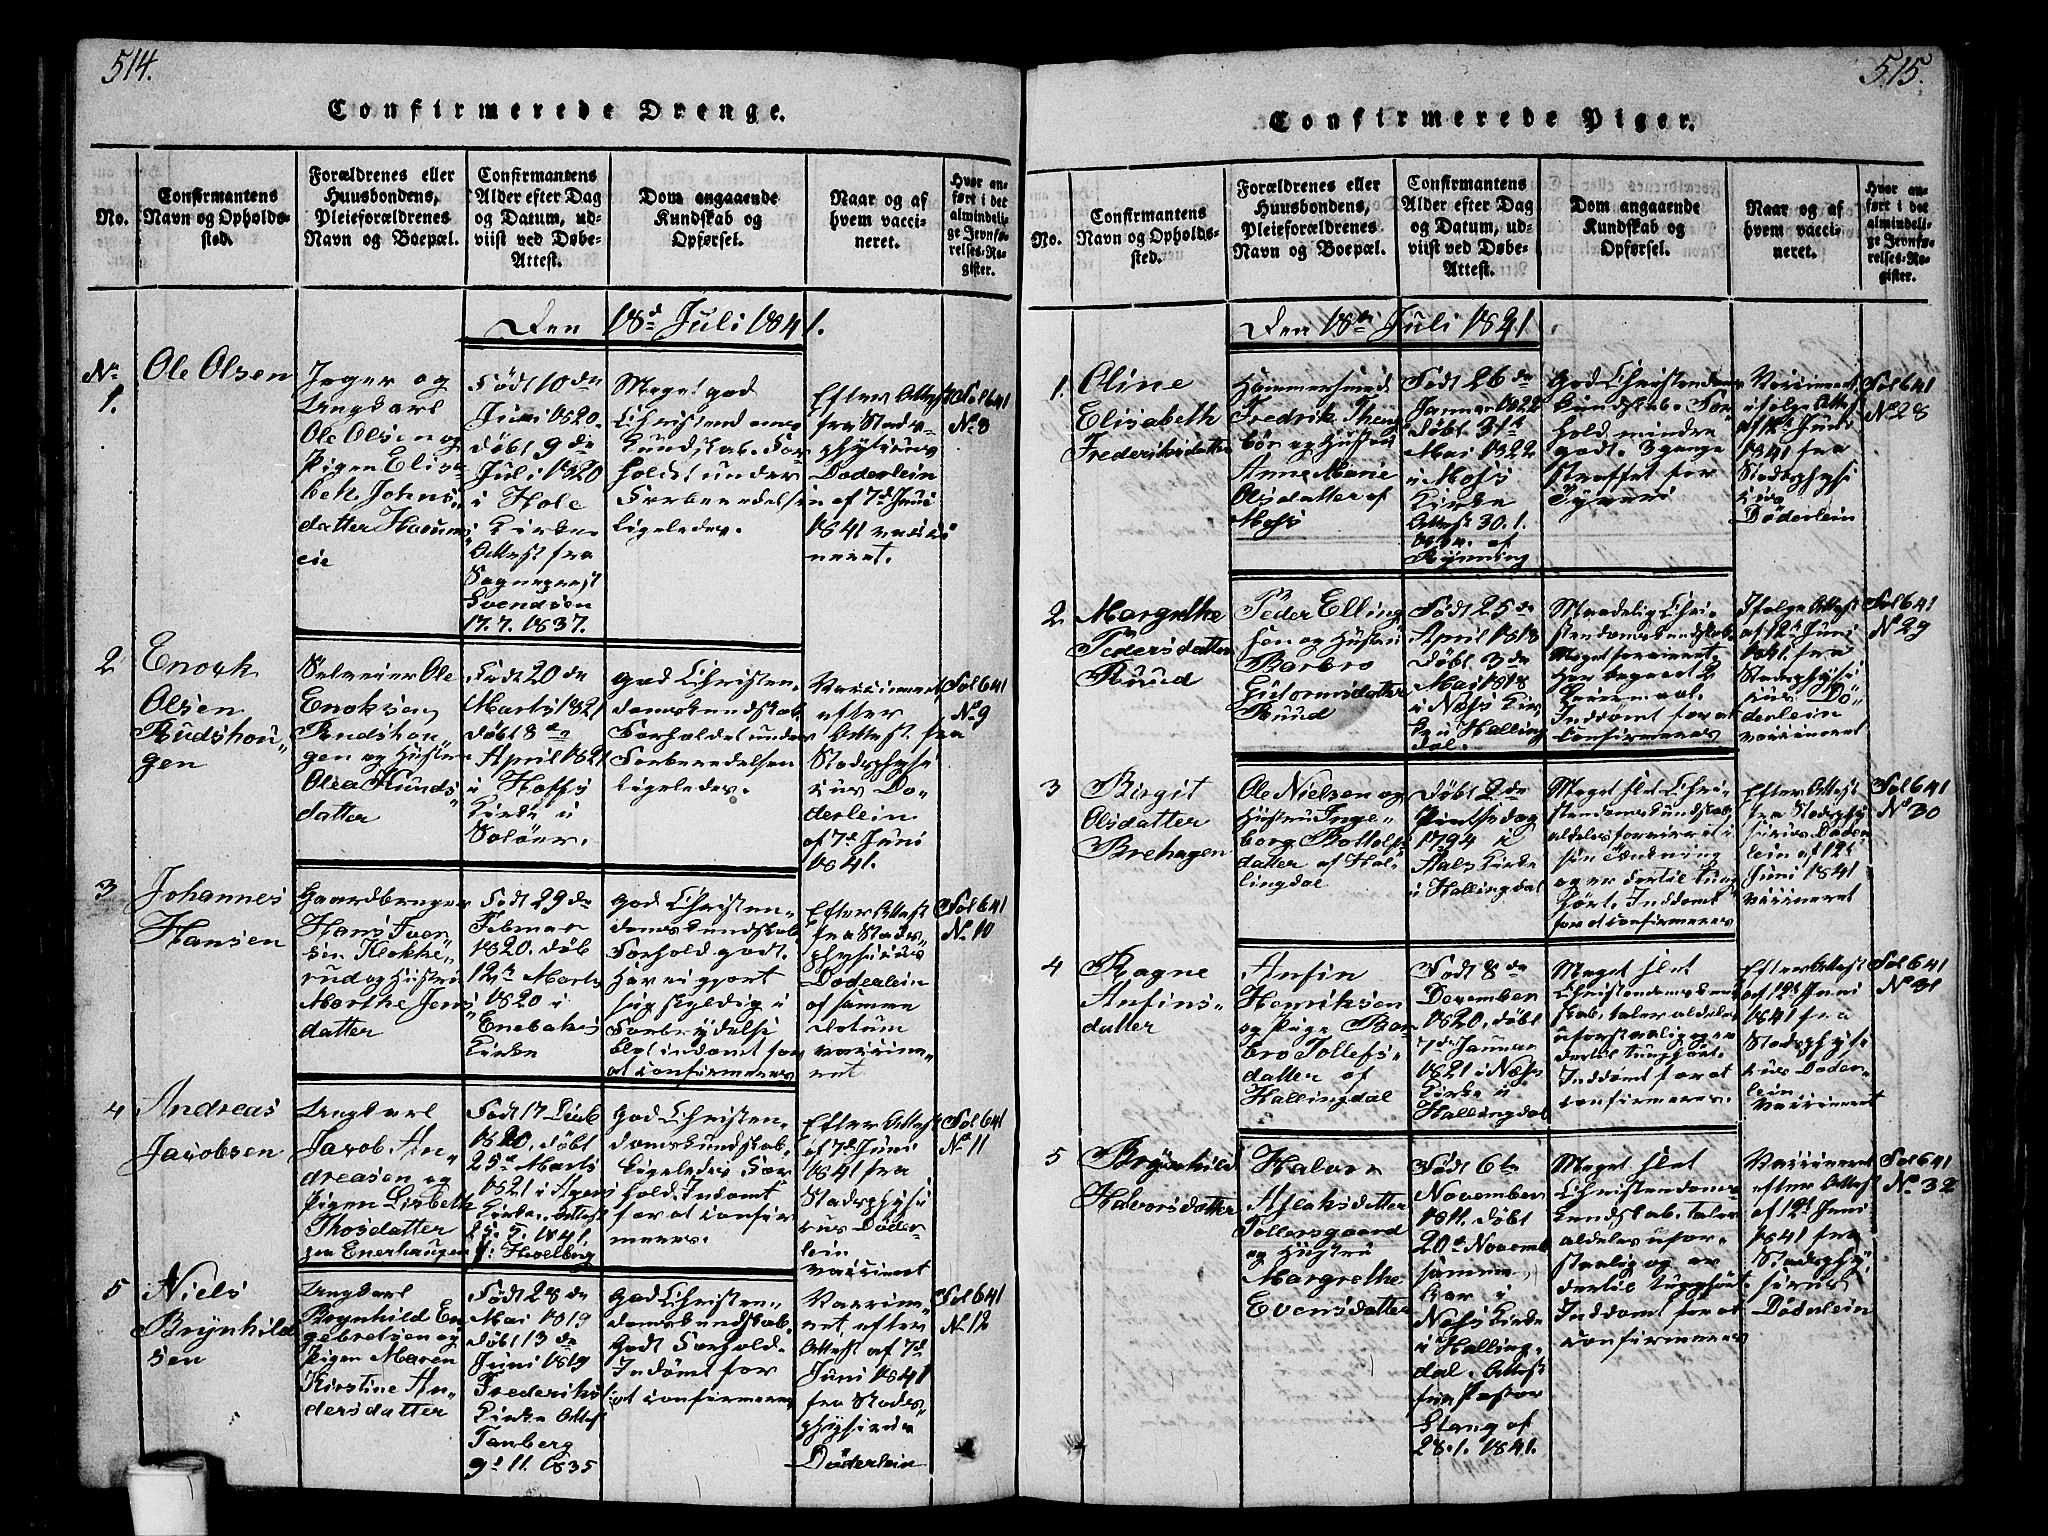 514.
Confirmerede Drenge.
No.
Confirmantens
Navn og Opholds-
sted.
Forældrenes eller
Huusbondens,
Pleieforældrenes
Navn og Boepæl.
Confirmantens
Alder efter Dag
og Datum, ud-
viist ved Døbe-
Attest.
Dom angaaende
Kundskab og
Opførsel.
Naar og af
hvem vacci-
neret.
Hvor an-
ført i det
almindeli-
ge Jevnfø-
relses-Re-
gister.
Den 18d Juli 1841.
No
1.
Ole Olsen
Jeger og
Ungkarl
Ole Olsen og
Pigen Elisa-
beth Johns
datter
eie
Født 10de
Juni 1820.
døbt 9de
Juli 1820
i Hole
Kirke
Attest fra
Sogneprest
Svendsen
17.7.1837.
Meget god
Christendoms
Kundskab. For
holdt under
Forberedelse
ligeledes.
Efter Attest
fra Stads-
physicus
Døderlein
af 7d Juni
1841 vacci
neret.
Fol 641
No 8
2
Enock
Olsen
Rudshou-
gen
Selveier Ole
Enoksen
Rudshou
gen og Hustru
Olea
datter
Født 20de
Marts 1821
døbt 8de
April 1821
i Hoffs
Kirke i
Soløer.
God Christen-
domskundskab
Forholdet under
Forberedelsen
ligeledes.
Vaccineret
efter
Attest fra
Stadsphysi
cus Dø-
derlein
af 7d Juni
1841.
Fol 641
No 9
3
Johannes
Hansen
Gaardbruger
Hans Iver
sen Klokke-
rud og Hustru
Marthe Jens
datter
Født 29de
Februar
1820. døb
12te Marts
1820 i
Enebaks
Kirke
God Christen-
domskundskab
Forhold godt.
Har ei gjort
sig skyldig i
Forbrydelse
Blot indømt for
at confirmeres
Efter Attest
fra Stads-
physicus
Døderlein
af samme
Datum
vaccine-
ret
Fol 641
No 10
4
Andreas
Jacobsen
Ungkarl
Jacob An-
dreasen og
Pigen Lisbeth
Thosdatter
paa Enerhaugen
Født 17 Decb
1820, døbt
25de Marts
1821 i Agers
Kirke. Attest
5. 1841.
God Christen-
domskundskab.
Ligeledes For
hold. Indømt
for at confir
meres.
Efter Attest
af 7d Juni
1841 fra
Stadsphysi
cus Døder-
lein
vaccineret
Fol 641
No 11
5
Niels
Brynhild
sen
Ungkarl
Brynhild En
gebretsen og
Pigen Maren
Kirstine An-
dersdatter
Født 28de
Mai 1819
døbt 13de
Juni 1819
Frederiks
Kirke Attest
Tanberg
9d 11. 1835
God Christen-
domskundskab.
Godt Forhold.
Indømt for
at confirmeres
Vaccine-
ret efter
Attest af 7d
Juni 1841
fra Stads-
physicus
Døderlein
Fol 641
No 12
515.
Confirmerede Piger.
No.
Confirmantens
Navn og Opholds-
sted.
Forældrenes eller
Huusbondens,
Pleieforældrenes
Navn og Boepæl.
Confirmantens
Alder efter Dag
og Datum, ud-
viist ved Døbe-
Attest.
Dom angaaende
Kundskab og
Opførsel.
Naar og af
hvem vacci-
neret.
Hvor an-
ført i det
almindeli-
ge Jevnfø-
relses-Re-
gister.
Den 18de Juli 1841.
1.
Oline
Elisabeth
Frederiksdatter
Hammersmed
Fredrik
og Hustru
Anne Marie
Olsdatter af
Moss
Født 26de
Januar 1822
Døbt 31te
Mai 1822
i Moss
Kirke
Attest 30.1.
af
Rynning
God Christendoms
kundskab. For
hold mindre
godt. 3 gange
straffet for
Tyveri
Vaccineret
ifølge Attest
af 12te Juni
1841 fra
Stadsphysi
cus
Døderlein
Fol 641
No 28
2
Margrethe
Pedersdatter
Ruud
Peder Elling
sen og Hustru
Barbro
Guttormsdatter
Ruud
Født 25de
April 1818
Døbt 3de
Mai 1818
i Næss Kir
ke i Halling
dal.
Maadelig Chri-
stendomskundskab.
Meget forvirret.
Har begaaet 2
Leiermaal.
Inddømt for at
confirmeres
Ifølge Attest
af 12te Juni
1841. fra
Stadsphysi
cus Dø-
derlein
vaccineret
Fol 641
No 29
3
Birgit
Olsdatter
Brehagen
Ole Nielsen og
Hustru Inge-
borg Bottolfs
datter af Hal
lingdal
Døbt 2de
Pintsedag
1794 i
Aals Kirke
i Hallingdal
Meget slet Chri-
stendomskundskab,
aldeles forvirret i
sin Tænkning
og er dertil tung
hørt. Inddømt
for at confirmeres
Efter Attest
fra Stadsphy
sicus Døder
lein af 12te
Juni 1841
vaccineret
Fol 641
No 30
4
Ragne
Anfins-
datter
Anfin
Henriksen
og Pige Bar
bro Tollefs-
datter af
Hallingdal
Født 8de
December
1820, døbt
7de Januar
1821 i Næss
Kirke i
Hallingdal
Meget slet
Christendomskund
skab, taler aldeles
uforstaalig og er
dertil tunghørt.
Inddømt for at
confirmeres.
Efter Attest
af 12te Juni
1841 fra
Stadsphysi
cus Døder-
lein
vaccineret
Fol 641
No 31
5
Brynhild
Halvorsdatter
Halvor
Aslaksdatter
Tollersgaard
og Hustru
Margrethe
Evensdatter
Født 6te
November
1811. døbt
20de Novemb
samme
Aar i
Næss Kirke
i Halling-
dal. Attest
fra Pastor
Stang af
28.1.1841.
Meget slet
Christendoms
kundskab, taler
aldeles ufor-
staalig og er
dertil tunghørt.
Inddømt for at
confirmeres
Vaccineret
efter Attest
af 12te Juni
1841 fra
Stadsphy
sicus
Døderlein
Fol 641
No 32